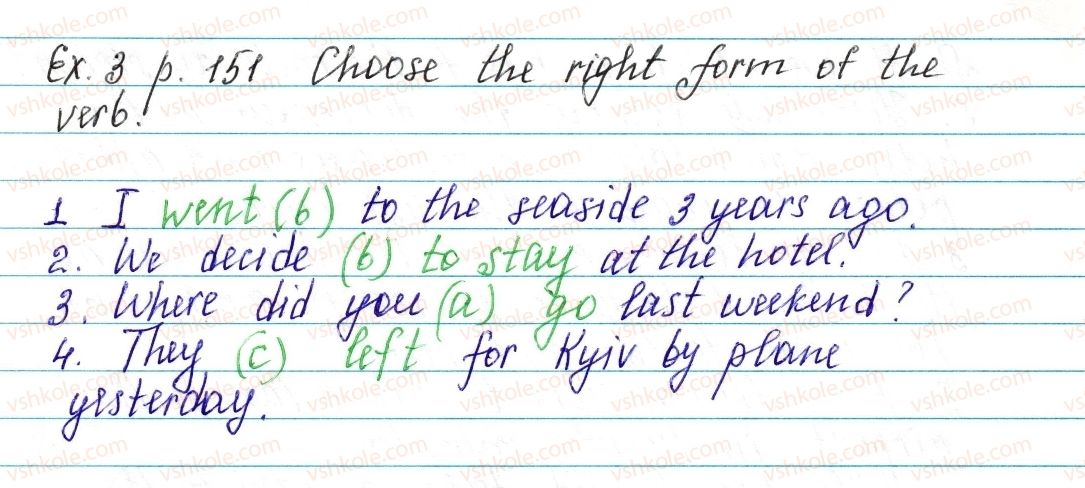 Ex. 3 p. 151 Choose the right form of the
verb!
1 I went (b) to the seaside 3 years ago.
2. We decide (b) to stay at the hotel.
3. Where did you (a) go last weekend?
4. They (c) left for Kyiv by plane
yesterday.